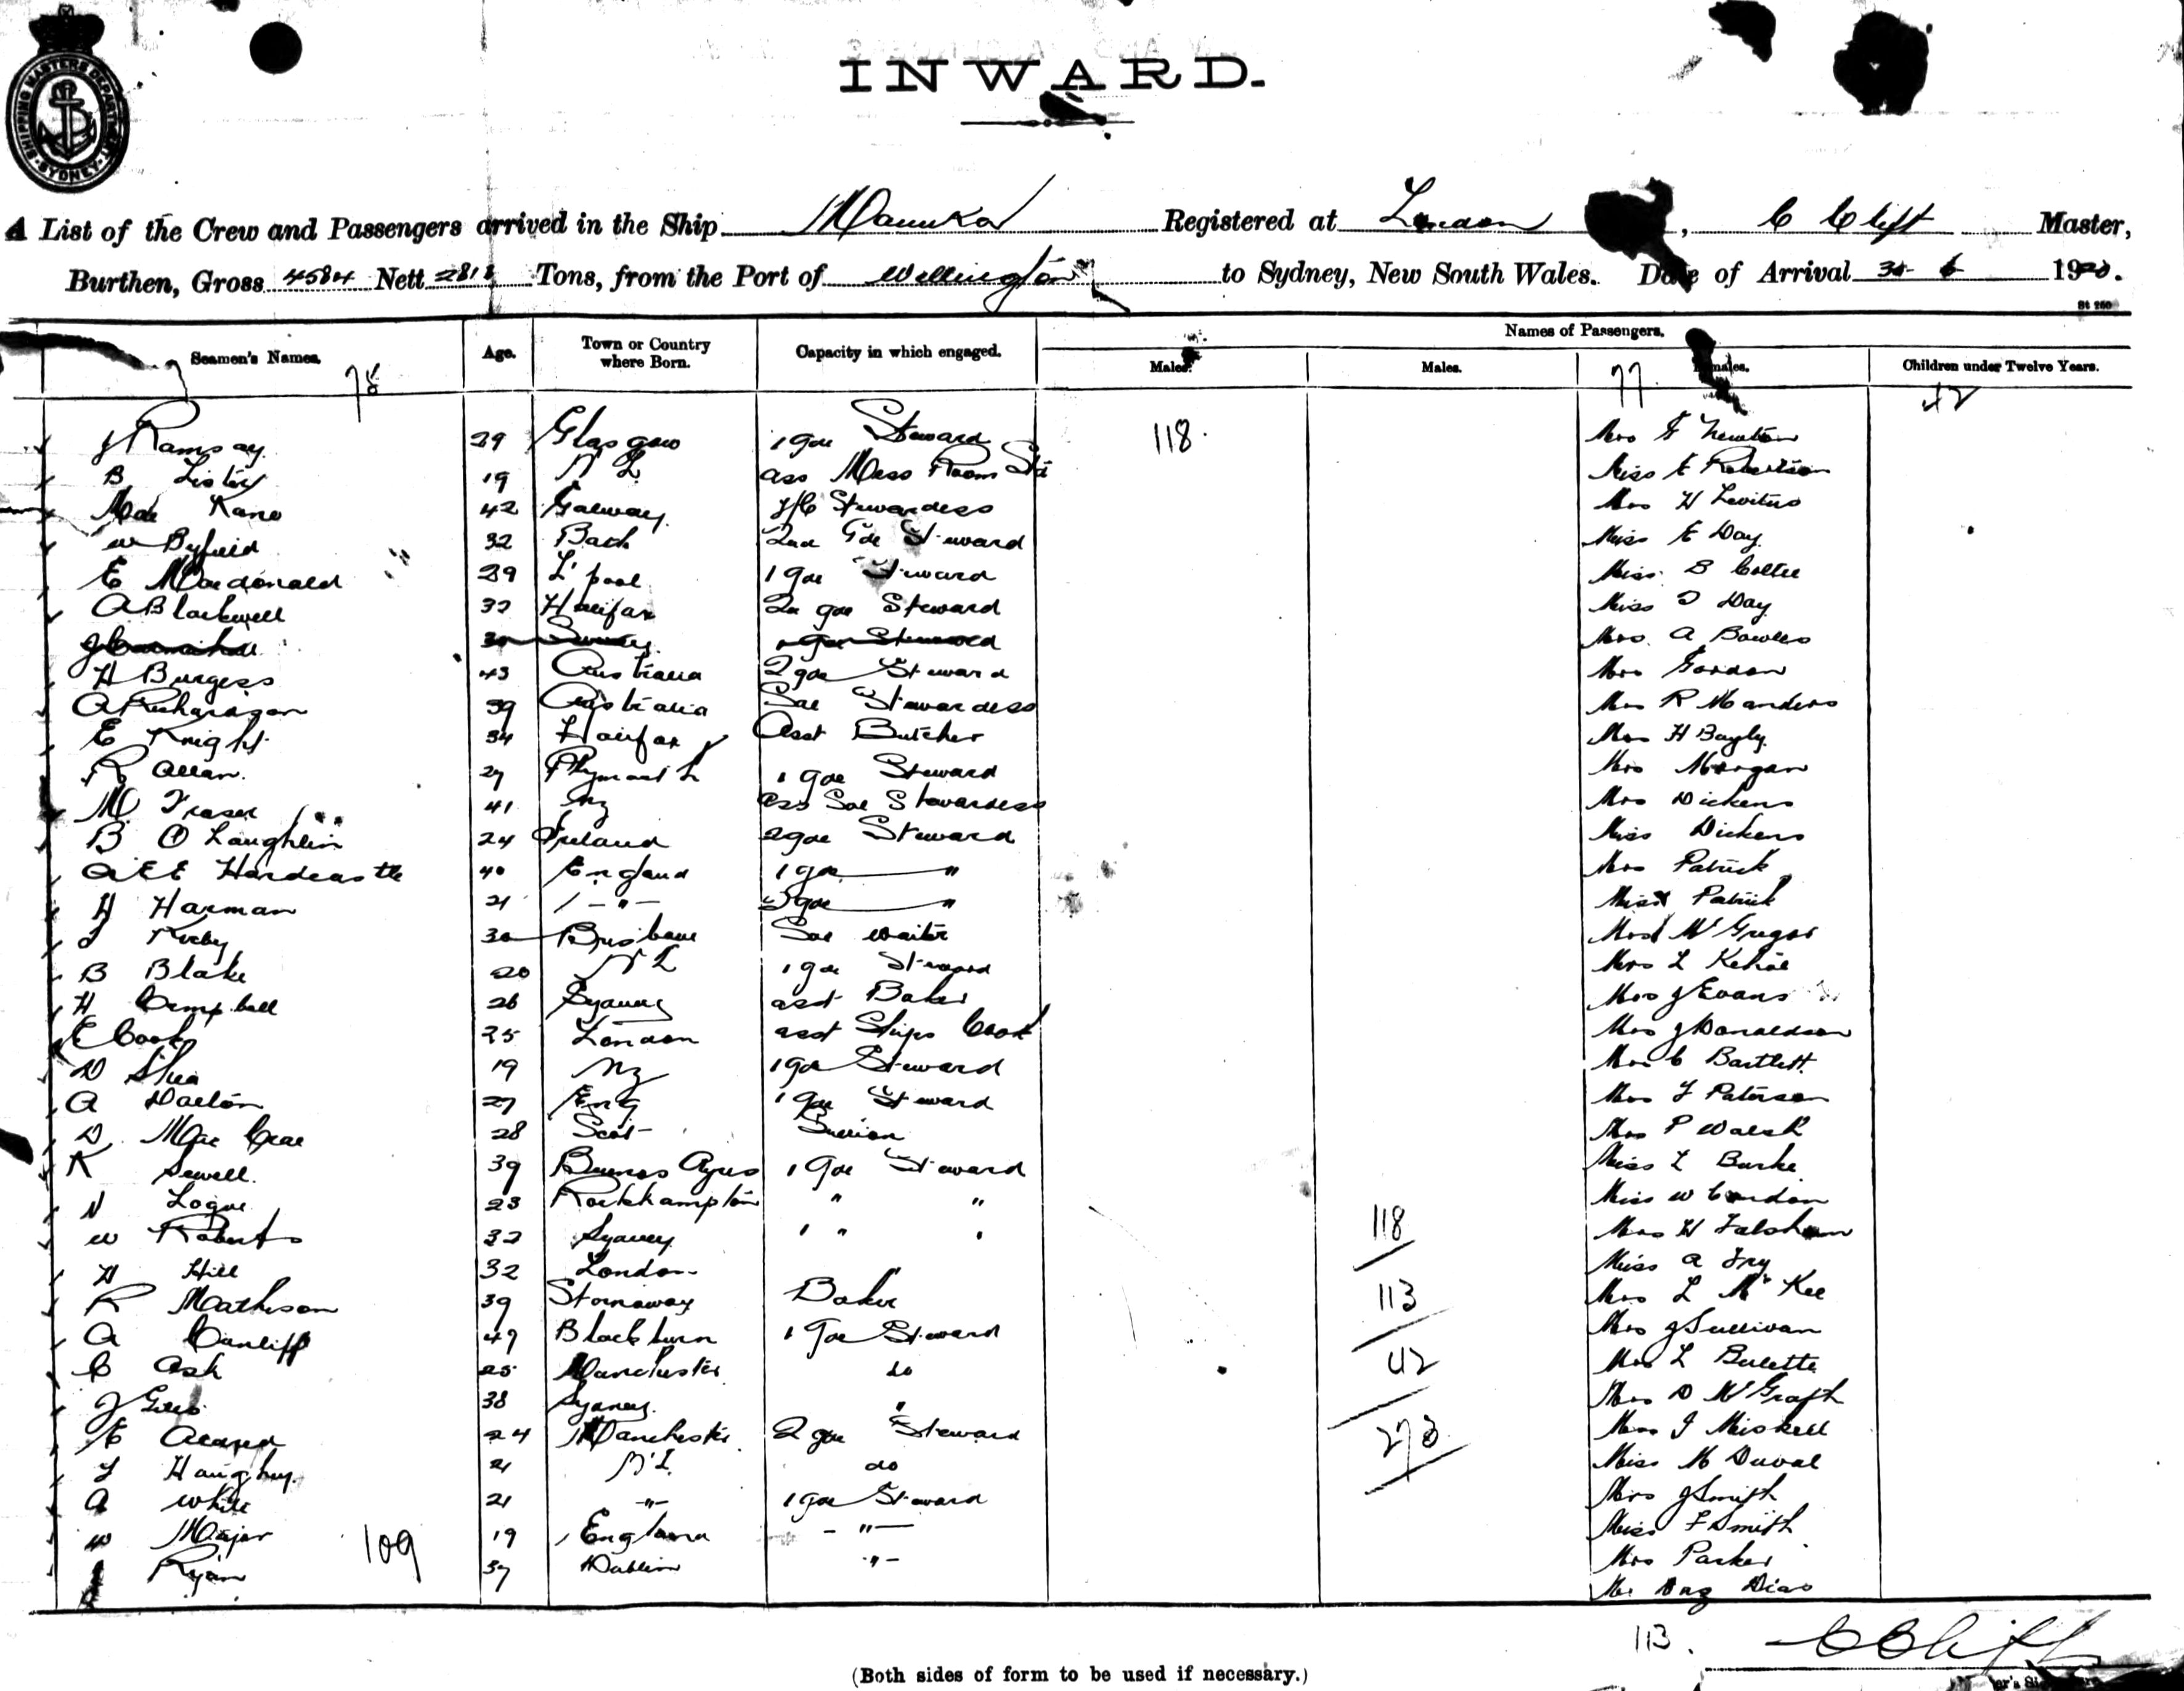 SHIPPING MASTERS DEPARTMENT SYDNEY
INWARD.
A List of the Crew and Passengers arrived in the Ship Manuka Registered at London, C Clift Master,
Burthen, Gross 4584 Nett Tons, from the Port of Wellington to Sydney, New South Wales. Date of Arrival 30- 6 1920.
St 260
Names of Passengers.
Seamen's Names. Age. Town or Country where Born. Capacity in which engaged. Males. Males. Females. Children under Twelve Years.
78 77 42
J Ramsay 29 Glasgow 1 gde Steward 118. Mrs Newton
B Lister 19 N Z ass Mess Room Miss E Robertson
Mae Kane 42 Galway Stewardess Mrs H Levitus
W Byfield 32 Bath 2nd Gde Steward Miss E Day
E Macdonald 29 L'pool 1 gde Steward Miss B Collie
A Blackwell 32 Halifax 2n gde Steward Miss Day
Steward Mrs. A Bowles
H Burgess 43 Australia 2 gde Steward Mrs Gordon
A Richardson 39 Australia Stewardess Mrs R Manders
E Knight 34 Halifax Asst Butcher Mrs H Bayly
R Allan 27 Plymouth 1 gde Steward Mrs Morgan
M Fraser 41 NZ ass Stewardess Mrs Dickens
B O Laughlin 24 Ireland 2 gde Steward Miss Dickens
A E E Hardcastle 40 England 1 gde " Mrs Patrick
H Harman 21 - " - gde " Miss Patrick
Kirby 30 Brisbane waiter McGregor
B Blake 20 N Z 1 gde Steward Mrs L Kehoe
H Campbell 26 Sydney asst Baker Mrs J Evans
E Cook 25 London asst Ships Cook Mrs J Donaldson
D Shea 19 NZ 1 gde Steward Mrs C Bartlett
A Dalton 27 Eng 1 gde Steward Mrs Paterson
D Mac Crae 28 Scot Mrs P Walsh
K Sewell 39 Buenos Ayres 1 Gde Steward Miss L Burke
N Logue 23 Rockhampton " " Miss W Condon
W Roberts 32 Sydney " 118 Mrs H Falsham
H Hill 32 London Miss A Fry
R Mathieson 39 Stornoway Baker 113 Mrs L McKee
A Cunliff 49 Blackburn 1 Gde Steward Mrs J Sullivan
C Ash 25 Manchester do 42 Mrs L
J Giles 38 Sydney " Mrs D McGrath
E 24 Manchester 2 gde Steward 273 Mrs Miskell
Haughey 21 N Z. do Miss M Duval
A White 21 -"- 1 gde Steward Mrs J Smith
W Major 109 19 England - " - Miss F Smith
Ryan 37 Dublin " - Mrs Parker
Dias
113. C Clift
(Both sides of form to be used if necessary.)